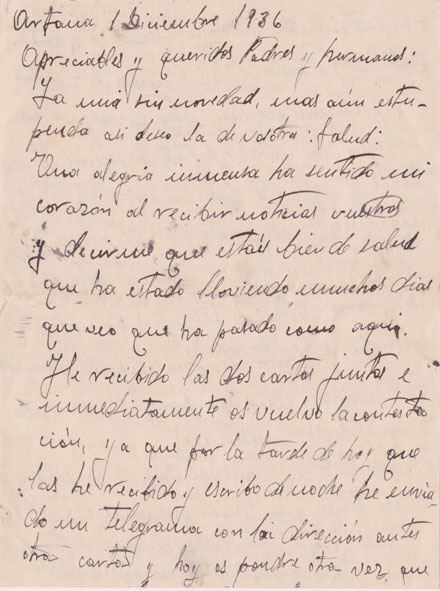 Artana 1 Diciembre 1936
Apreciables y queridos Padres y hermanos:
La mia sin novedad, mas aún estu-
penda asi deseo la de vosotros: Salud:
Una alegria inmensa ha sentido mi
corazón al recibir noticias vuestras
y decirme que estáis bien de salud
que ha estado lloviendo muchos dias
que veo que ha pasado como aqui.
He recibido las dos cartas juntas e
inmediatamente os vuelvo la contesta
ción, ya que por la tarde de hoy que
las he recibido y escribo de noche he envia-
do un telegrama con la dirección antes
otra carta y hoy os pondre otra vez, que